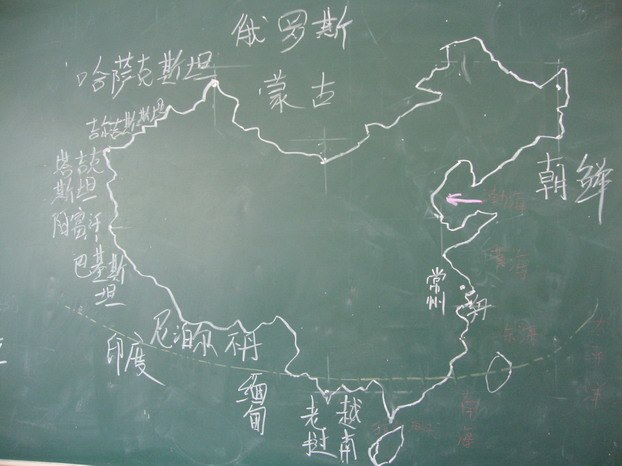 俄罗斯
哈萨克斯坦
蒙古
吉尔吉斯斯坦
塔吉克
斯坦
朝鲜
阿富汗
巴基斯
坦
渤海
黄海
常
州
东海
尼泊尔
不丹
印度
缅
甸
老
挝
越
南
南
海